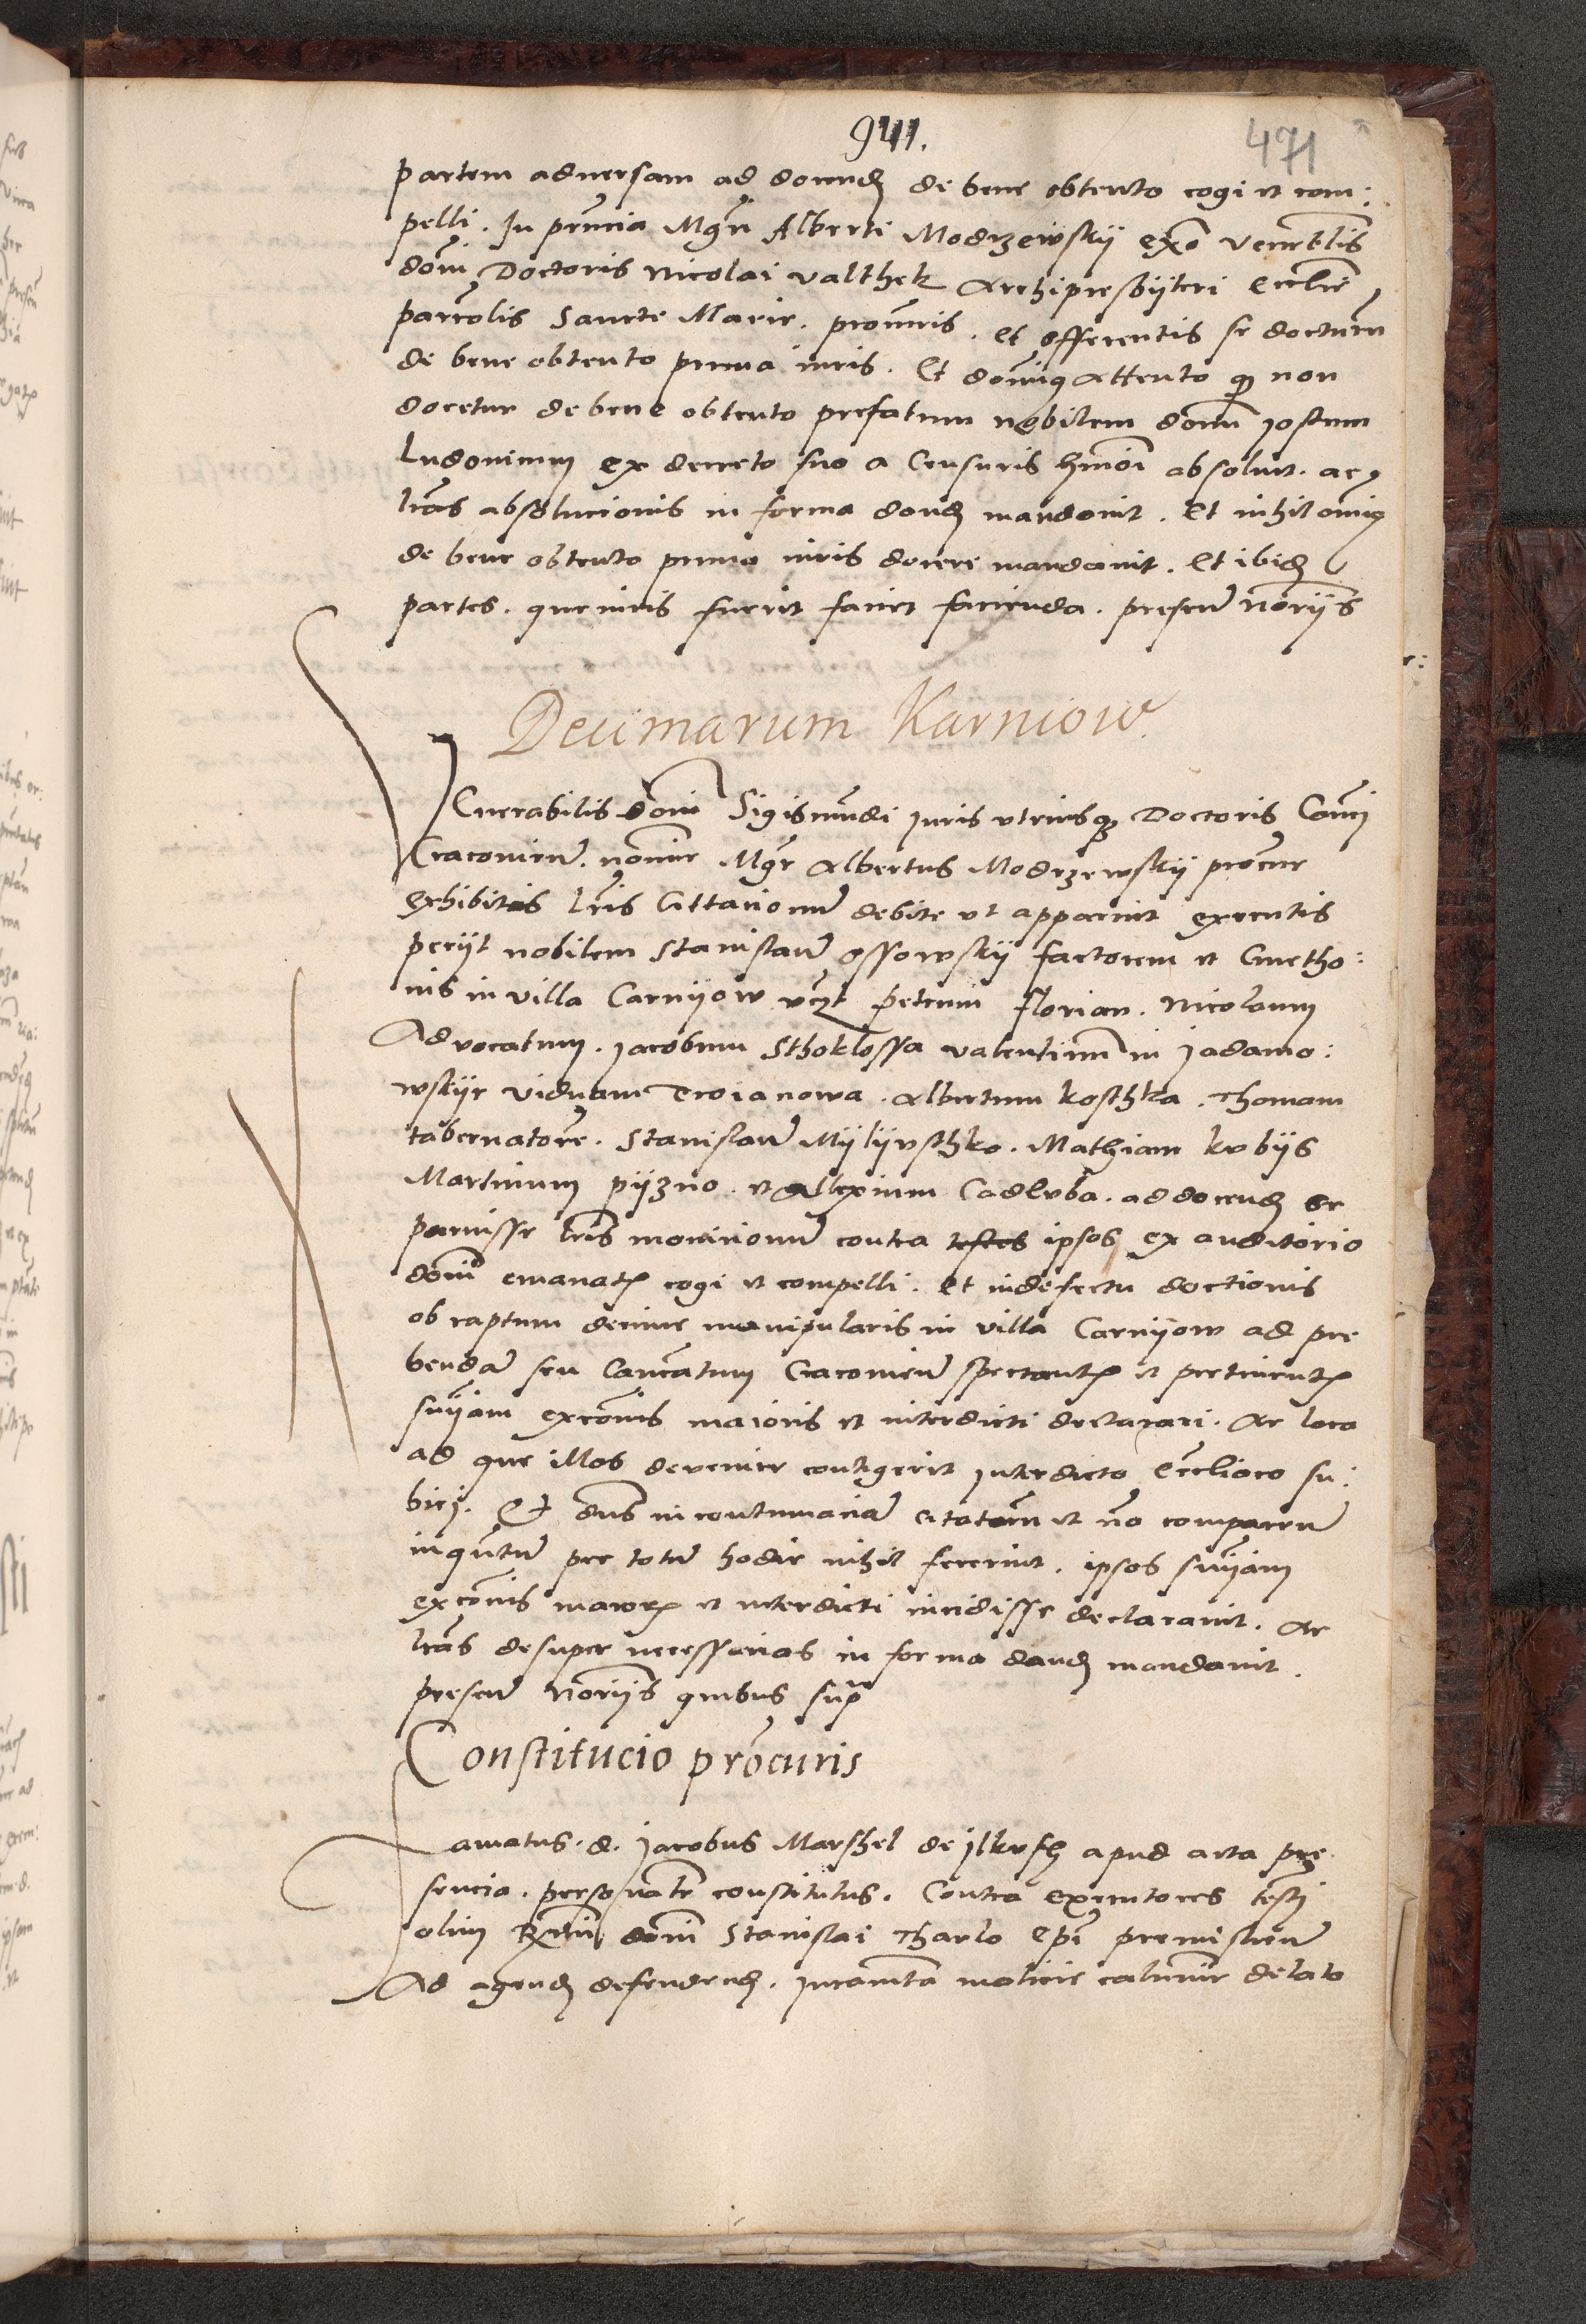 941.
471
partem aduersam ad docend de bene obtento cogi et com:
pelli. In pñcia Mgri Alberti Modrzewskÿ exõ veneblis
domi Doctoris Nicolai valthek Archipresbÿteri Ecclie
parrolis Sancte Marie. procuris. et offerentis se docturum
de bene obtento prima iuris. Et dominus attento quod non
docetur de bene obtento prefatum nobilem donu Jostum
Ludouicum ex decreto suo a Censuris hmoi absoluit. ac
lras absolucionis in forma dand mandauit. Et nihilominus
de bene obtento prima iuris docere mandauit. Et ibid
partes. que iuris fuerit faciet facienda. presen norÿs
Decimarum Karniow.
Venerabilis domi Sigismundi Juris vtriusque Doctoris Canci
Cracouien. nomine Mgr Albertus Modrzewskÿ procur
exhibitis lris Cittacionum debite vt apparuit executis
pecÿt nobilem Stanislaum Ossowskÿ factorem et Cmetho:
nes in villa Carnÿow vczt petrum florian. Nicolaum
Aduocatum. Jacobum Sthoklossa valentinum in Jadamo:
wskÿe viduam Troianowa. Albertum koschka. Thomam
tabernatore. Stanislaum Mÿlÿvschko. Mathiam kobÿs
Martinum pÿzno. et Allexium Cadlvba. ad docend se
paruisse lris monicionum contra testes ipsos ex auditorio
domi emanat cogi et compelli. et in defectu doctionis
ob raptum decime manipularis in villa Carnÿow ad pre
bendam seu Cancatum Cracouien spectant et pertinent
suÿam excõnis maioris et interdicti declarari. Ac loca
ad que illos deuenire contigerit Interdicto Eccliaco su:
bici. Et dns in contumaciam citatorum et no comparen
inquantum per totum hodie nihil fecerint. ipsos suÿam
excõnis maior et interdicti incidisse declarauit. Ac
lras desuper necessarias in forma dand mandauit.
presen norÿs quibus sup
Constitucio procuris
amatus. d. Jacobus Marshel de Jlkvsch apud acta pre
sencia. personalr constitutus. Contra executores testi
olim Rndi domi Stanislai Tharlo Epi premislien
Ad agend defendend. Juramta malicie calumie delato